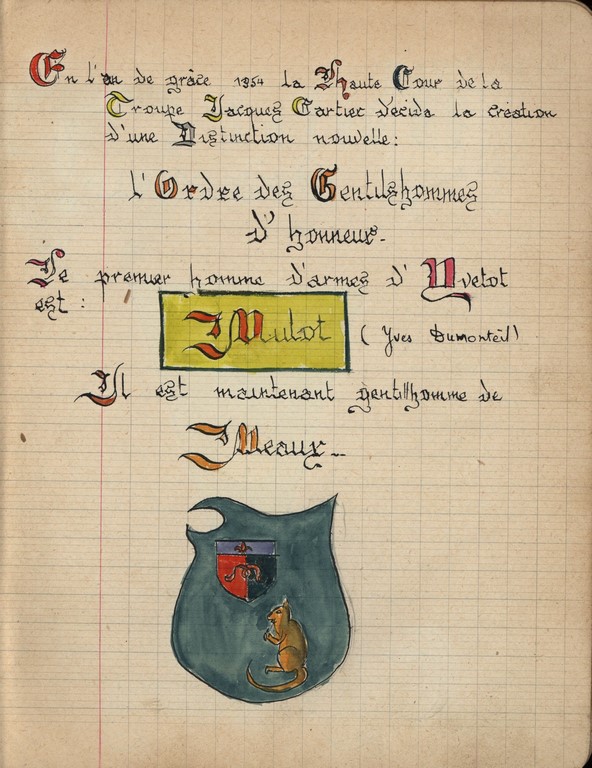 En l'an de grâce 1954 la Haute Cour de la
Troupe Jacques Cartier décida la création
d'une Distinction nouvelle:
l'Ordre des Gentilshommes
d'honneur.
Le premier homme d'armes d'Yvetot
est :
Mulot (Yves Dumonteil)
Il est maintenant gentilhomme de
Meaux._